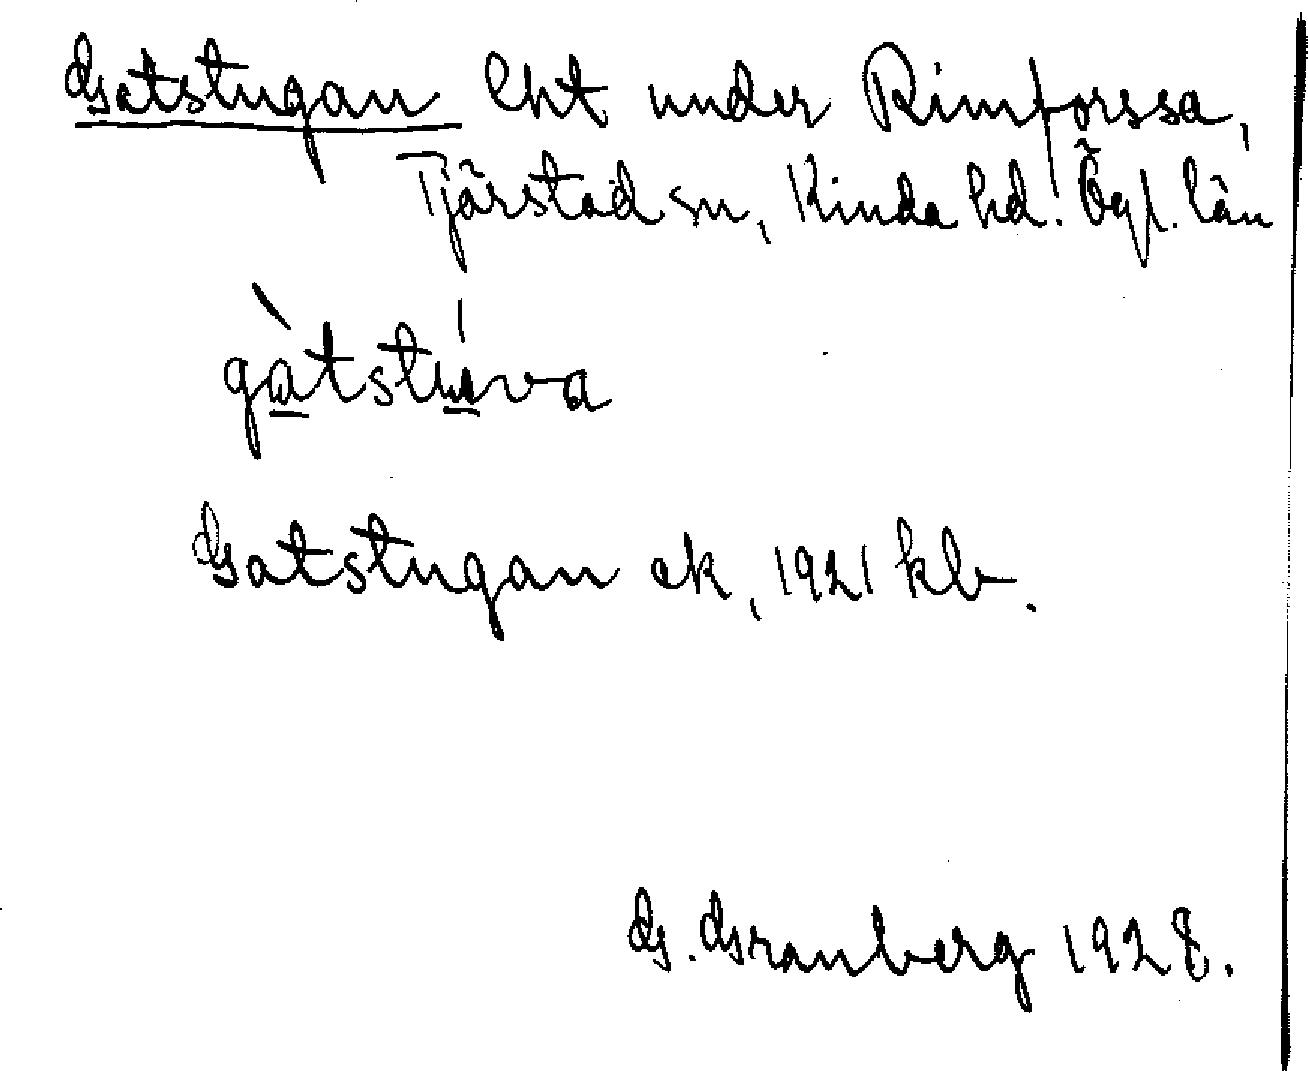 Gatstugan lht under Rimforssa,
Tjärstad sn, Kinda hd. Ögl. län
gàtstúva
Gatstugan ek, 1921 kb.
G. Granberg 1928.